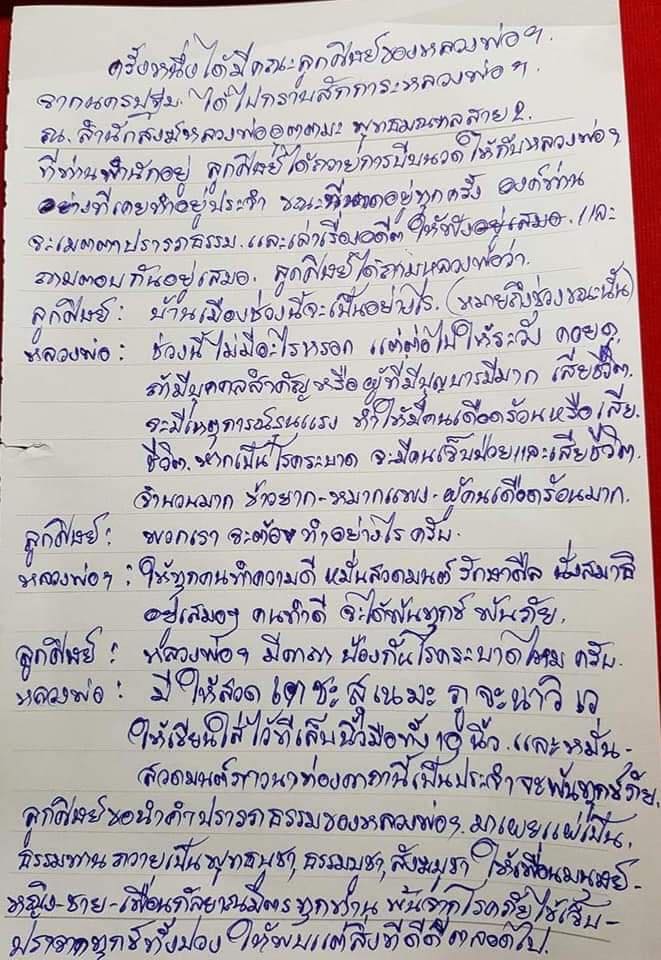 ครั้งหนึ่งได้มีคณะลูกศิษย์ของหลวงพ่อฯ
จากนครปฐม ได้ไปกราบสักการะหลวงพ่อฯ
ณ. สำนักสงฆ์หลวงพ่ออุตตามะ พุทธมณฑลสาย 2.
ที่ท่านพำนักอยู่ ลูกศิษย์ได้ถวายการบีบนวด ให้กับหลวงพ่อฯ
อย่างที่เคยทำอยู่ประจำ ขณะที่นวดอยู่ทุกครั้ง องค์ท่าน
จะเมตตาปรารภธรรม. และเล่าเรื่องอดีต ให้ฟังอยู่เสมอ. และ
ถามตอบกันอยู่เสมอ. ลูกศิษย์ได้ถามหลวงพ่อว่า.
ลูกศิษย์ : บ้านเมืองช่วงนี้จะเป็นอย่างไร. (หมายถึงช่วงขณะนั้น)
หลวงพ่อ : ช่วงนี้ไม่มีอะไรหรอก แต่ต่อไปให้ระวัง คอยดู,
ถ้ามีบุคคลสำคัญหรือ ผู้ที่มีบุญบารมีมาก เสียชีวิต.
จะมีเหตุการณ์รุนแรง ทำให้มีคนเดือดร้อนหรือเสีย.
ชีวิต. หากเป็นโรคระบาด จะมีคนเจ็บป่วยและเสียชีวิต.
จำนวนมาก ข้าวยาก-หมากแพง. ผู้คนเดือดร้อนมาก.
ลูกศิษย์ : พวกเรา จะต้องทำอย่างไร ครับ.
หลวงพ่อฯ : ให้ทุกคนทำความดี หมั่นสวดมนต์ รักษาศีล นั่งสมาธิ
อยู่เสมอๆ คนทำดี จะได้พ้นทุกข์ พ้นภัย.
ลูกศิษย์ : หลวงพ่อฯ มีคาถา ป้องกันโรคระบาดไหม ครับ.
หลวงพ่อ : มี ให้สวด เต ชะ สุ เน มะ ภู จะ นา วิ เว
ให้เขียนใส่ไว้ที่เล็บนิ้วมือทั้ง 10 นิ้ว. และหมั่น-
สวดมนต์ภาวนาท่องคาถานี้เป็นประจำ จะพ้นทุกข์ภัย.
ลูกศิษย์ขอนำคำปรารภธรรมของหลวงพ่อฯ. มาเผยแผ่เป็น.
ธรรมทาน ถวายเป็นพุทธบูชา, ธรรมบูชา, สังฆบูชา ให้เพื่อนมนุษย์-
หญิง-ชาย-เพื่อนกัลยาณมิตร ทุกท่าน พ้นจากโรคภัยไข้เจ็บ-
ปราศจากทุกข์ทั้งปวง ให้พบแต่สิ่งที่ดีดีตลอดไป.